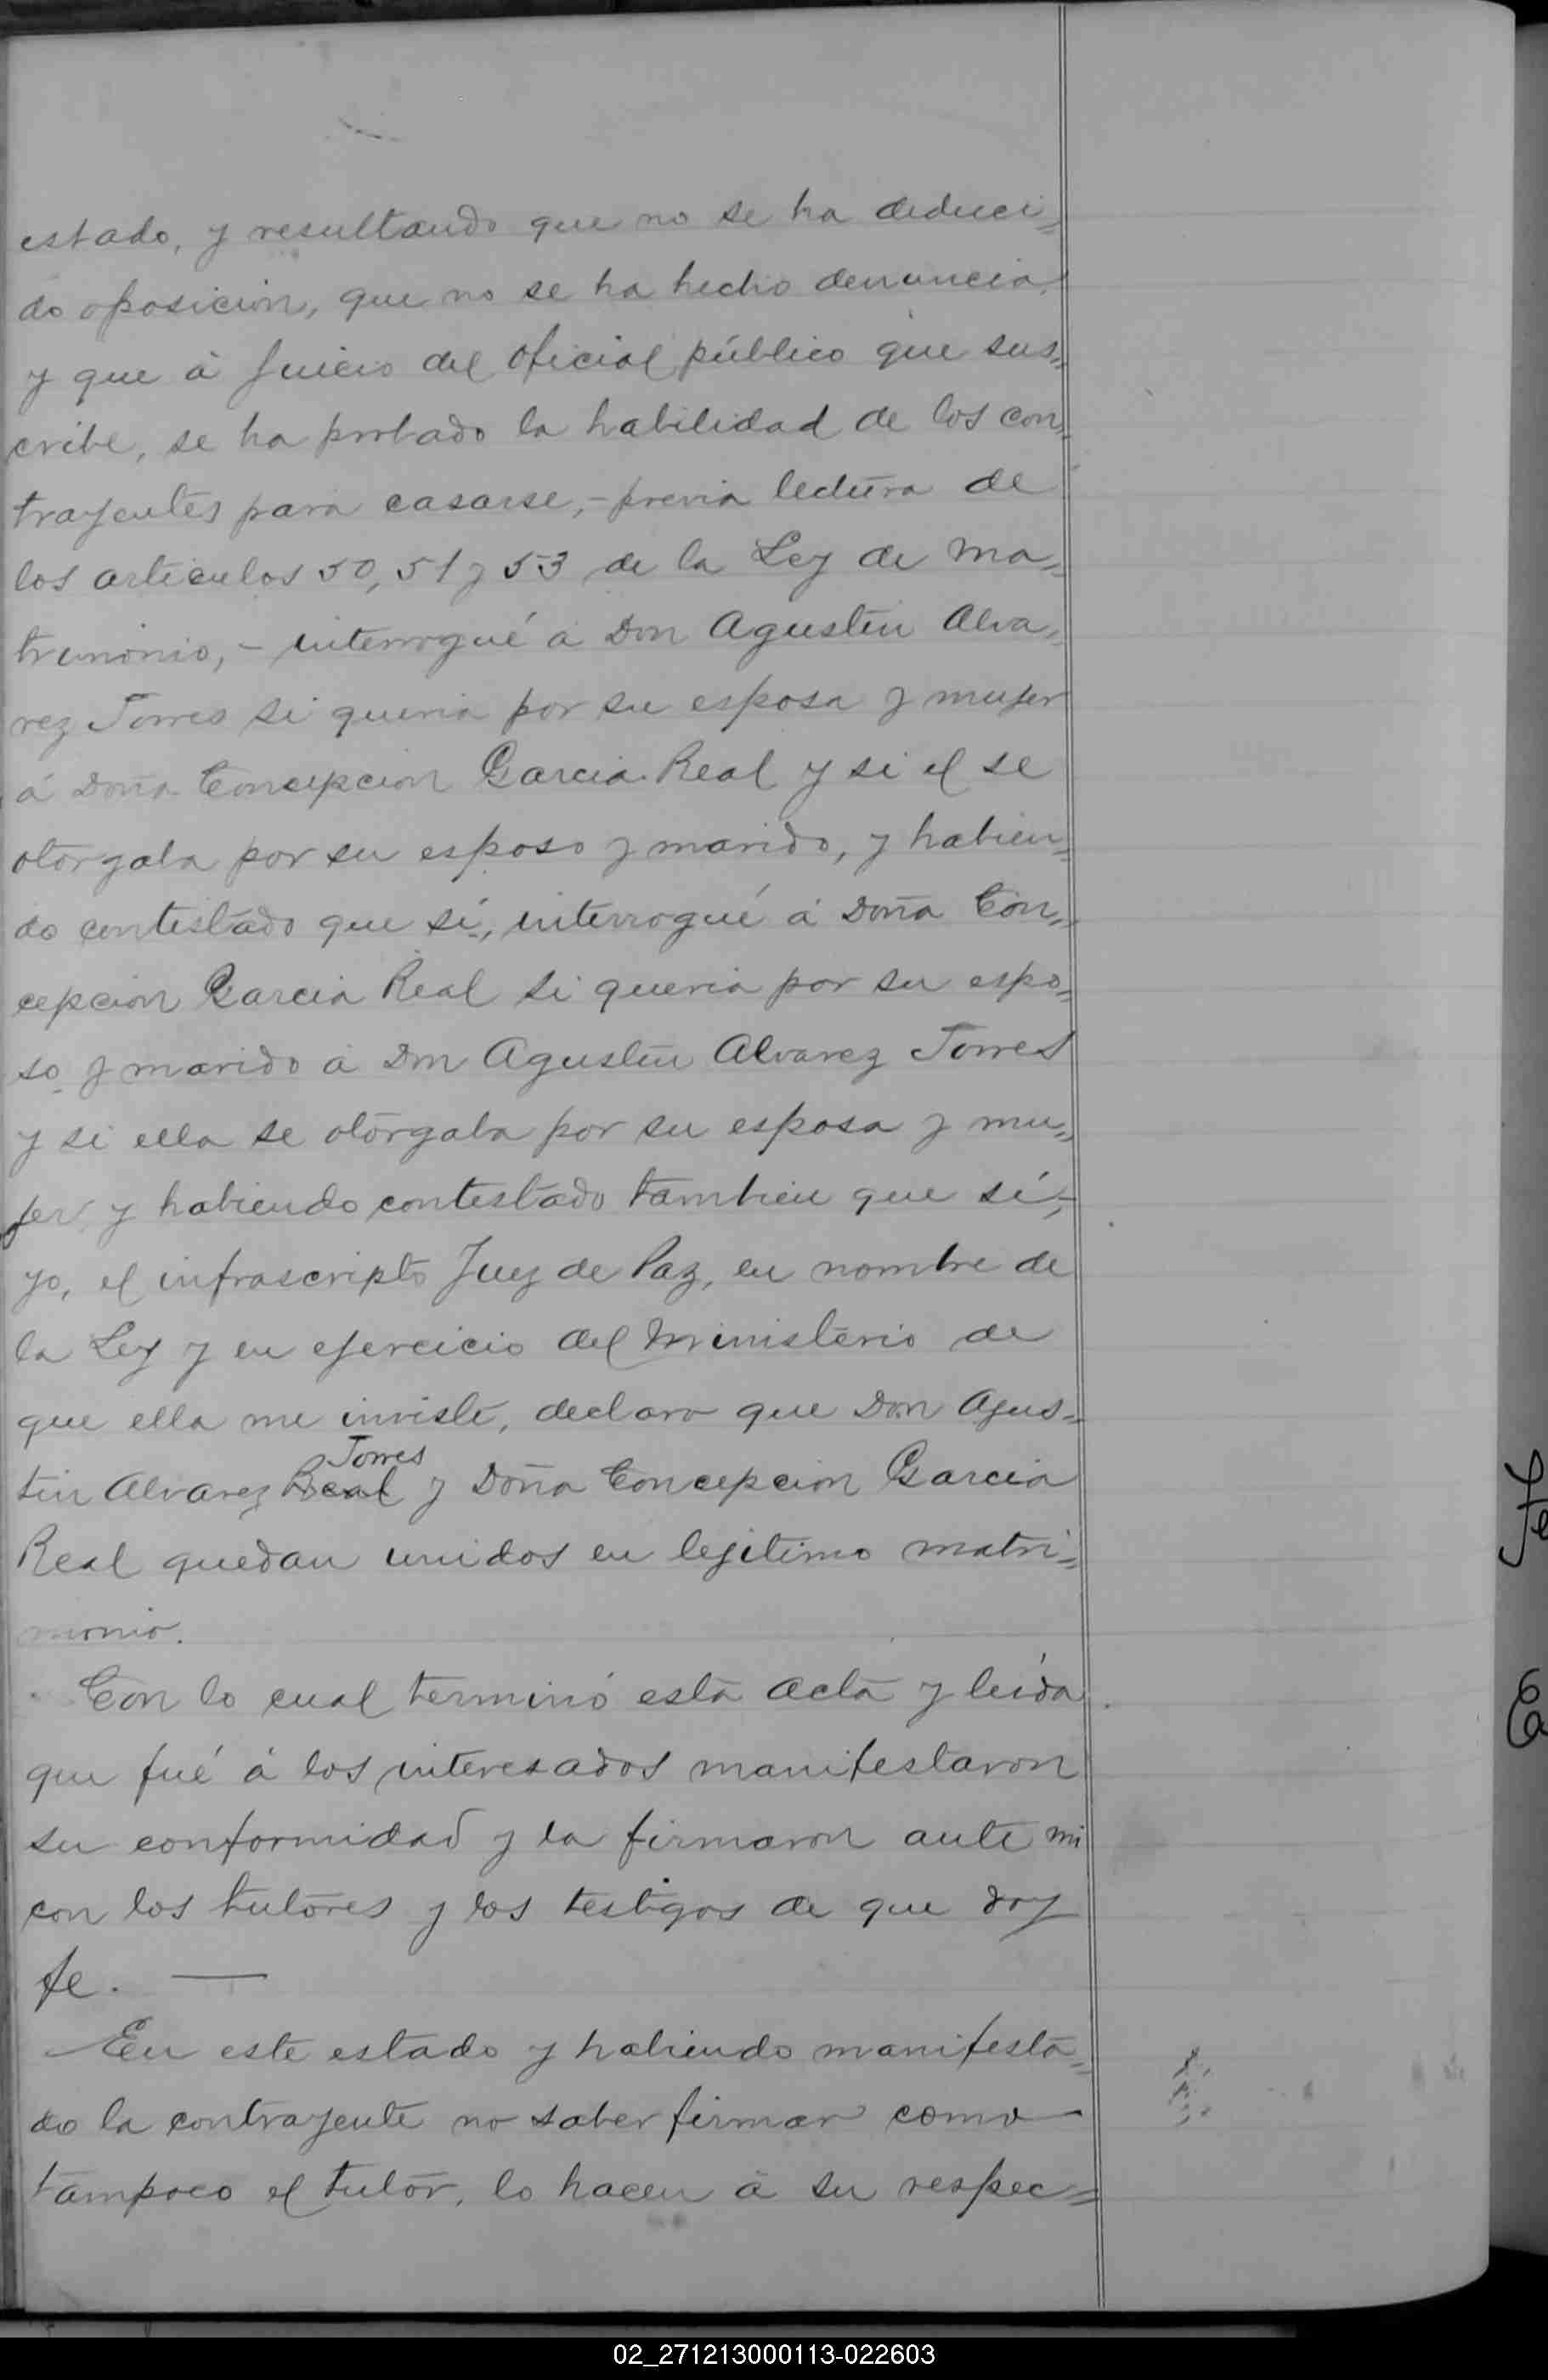 estado, y resultando que no se ha deduci=
do oposicion, que no se ha hecho denuncia,
y que á juicio del oficial público que sus=
cribe, se ha probado la habilidad de los con=
trayentes para casarse,- previa lectura de
los articulos 50, 51 y 53 de la Ley de Ma=
trimonio,- interrogué á Don Agustin Alva=
rez Torres si queria por su esposa y mujer
á Doña Concepcion Garcia Real y si el se
otorgaba por su esposo y marido, y habien=
do contestado que sí, interrogué á Doña Con=
cepcion Garcia Real si queria por su espo=
so y marido á Don Agustin Alvarez Torres
y si ella se otorgaba por su esposa y mu=
jer y habiendo contestado tambien que sí,-
yo, el infrascripto Juez de Paz, en nombre de
la Ley y en ejercicio del Ministerio de
que ella me inviste, declaro que Don Agus=
Torres
tin Alvarez Real y Doña Concepcion Garcia
Real quedan unidos en lejitimo matri=
monio.
Con lo cual terminó esta acta y leída
que fué á los interesados manifestaron
su conformidad y la firmaron ante mi
con los tutores y los testigos de que doy
fe. —
En este estado y habiendo manifesta=
do la contrayente no saber firmar como
tampoco el tutor, lo hacen á su respec=
02_271213000113-022603